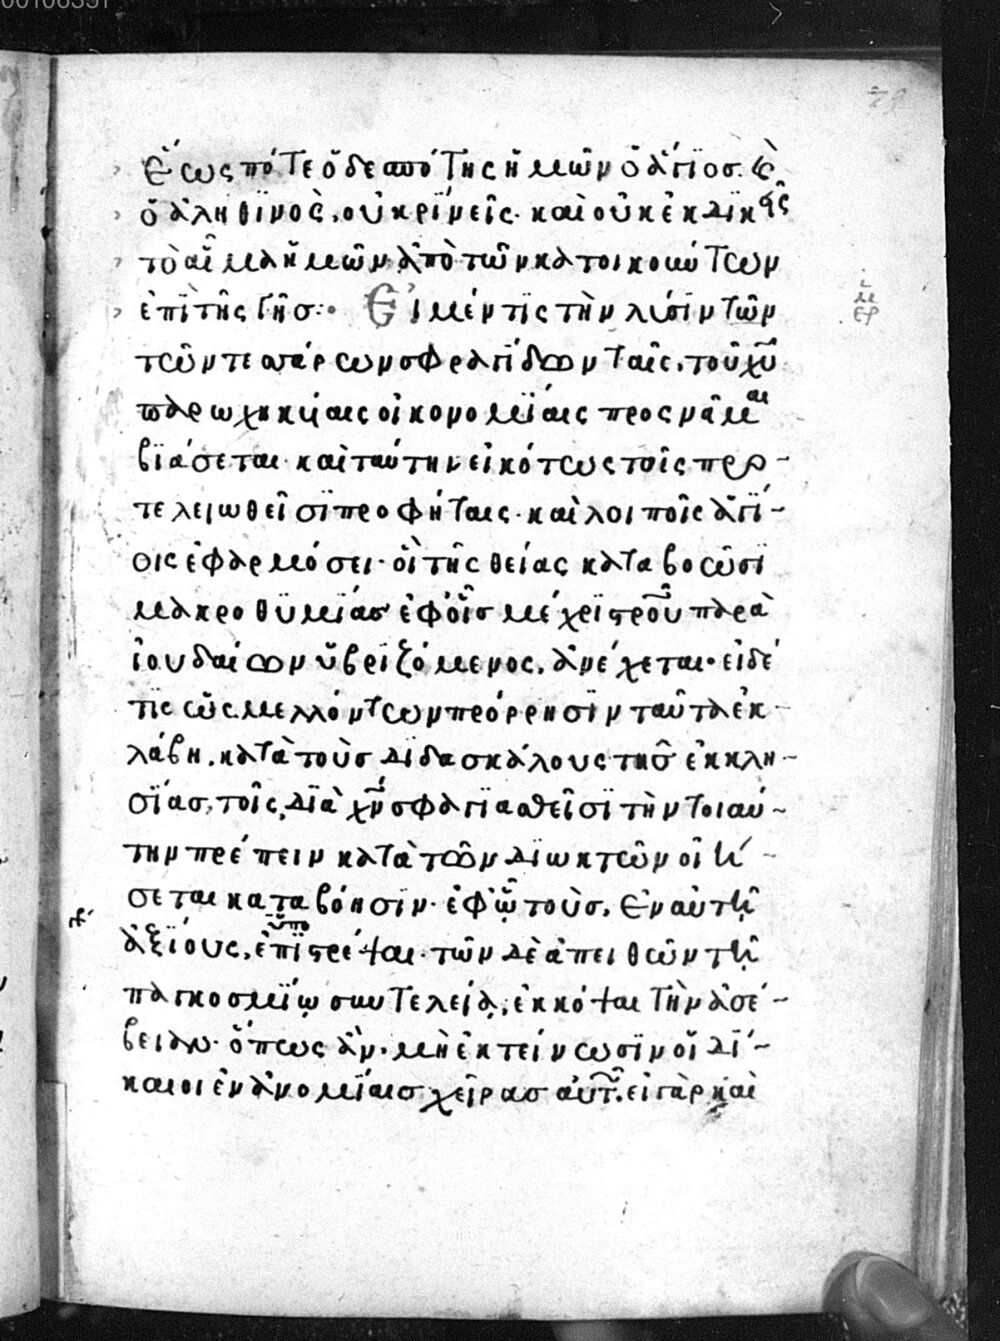 00106351
79
Ἕως πότε ὁ δεσπότης ἡμῶν ὁ ἅγιος καὶ
ὁ ἀληθινὸς, οὐ κρίνεις· καὶ οὐκ ἐκδικεῖς
τὸ αἷμα ἡμῶν ἀπὸ τῶν κατοικούντων
ἐπὶ τῆς γῆς:· Εἰ μέν τις τὴν λύσιν τῶν
τῶν τεσσάρων σφραγίδων ταῖς, τοῦ χυ
παρωχηκυίαις οἰκονομίαις προσνεῖμαι
βιάσεται· καὶ ταύτην εἰκότως τοῖς προ-
τελειωθεῖσι προφήταις· καὶ λοιποῖς ἁγί-
οις ἐφαρμόσει· οἳ τῆς θείας καταβοῶσι
μακροθυμίας ἐφ' οἷς μέχρι στροῦ παρὰ
ἰουδαίων ὑβριζόμενος, ἀνέχεται· εἰ δέ
τις ὡς μελλόντων πρόρρησιν ταῦτα ἐκ-
λάβῃ, κατὰ τοὺς διδασκάλους τῆς ἐκκλη-
σίας, τοῖς διὰ χν σφαγιασθεῖσι τὴν τοιαύ-
την πρέπειν κατὰ τῶν διωκτῶν οἰή-
σεται καταβόησιν· ἐφ' ᾧ τοὺς, ἐν αὐτῇ
ἀξίους, ὑπο ἐπιστρέψαι· τῶν δὲ ἀπειθῶν τῇ
παγκοσμίῳ συντελείᾳ, ἐκκόψαι τὴν ἀσέ-
βειαν· ὅπως ἂν, μὴ ἐκτείνωσιν οἱ δί-
καιοι ἐν ἀνομίαις χεῖρας αὐτῶν. εἰ γὰρ καὶ